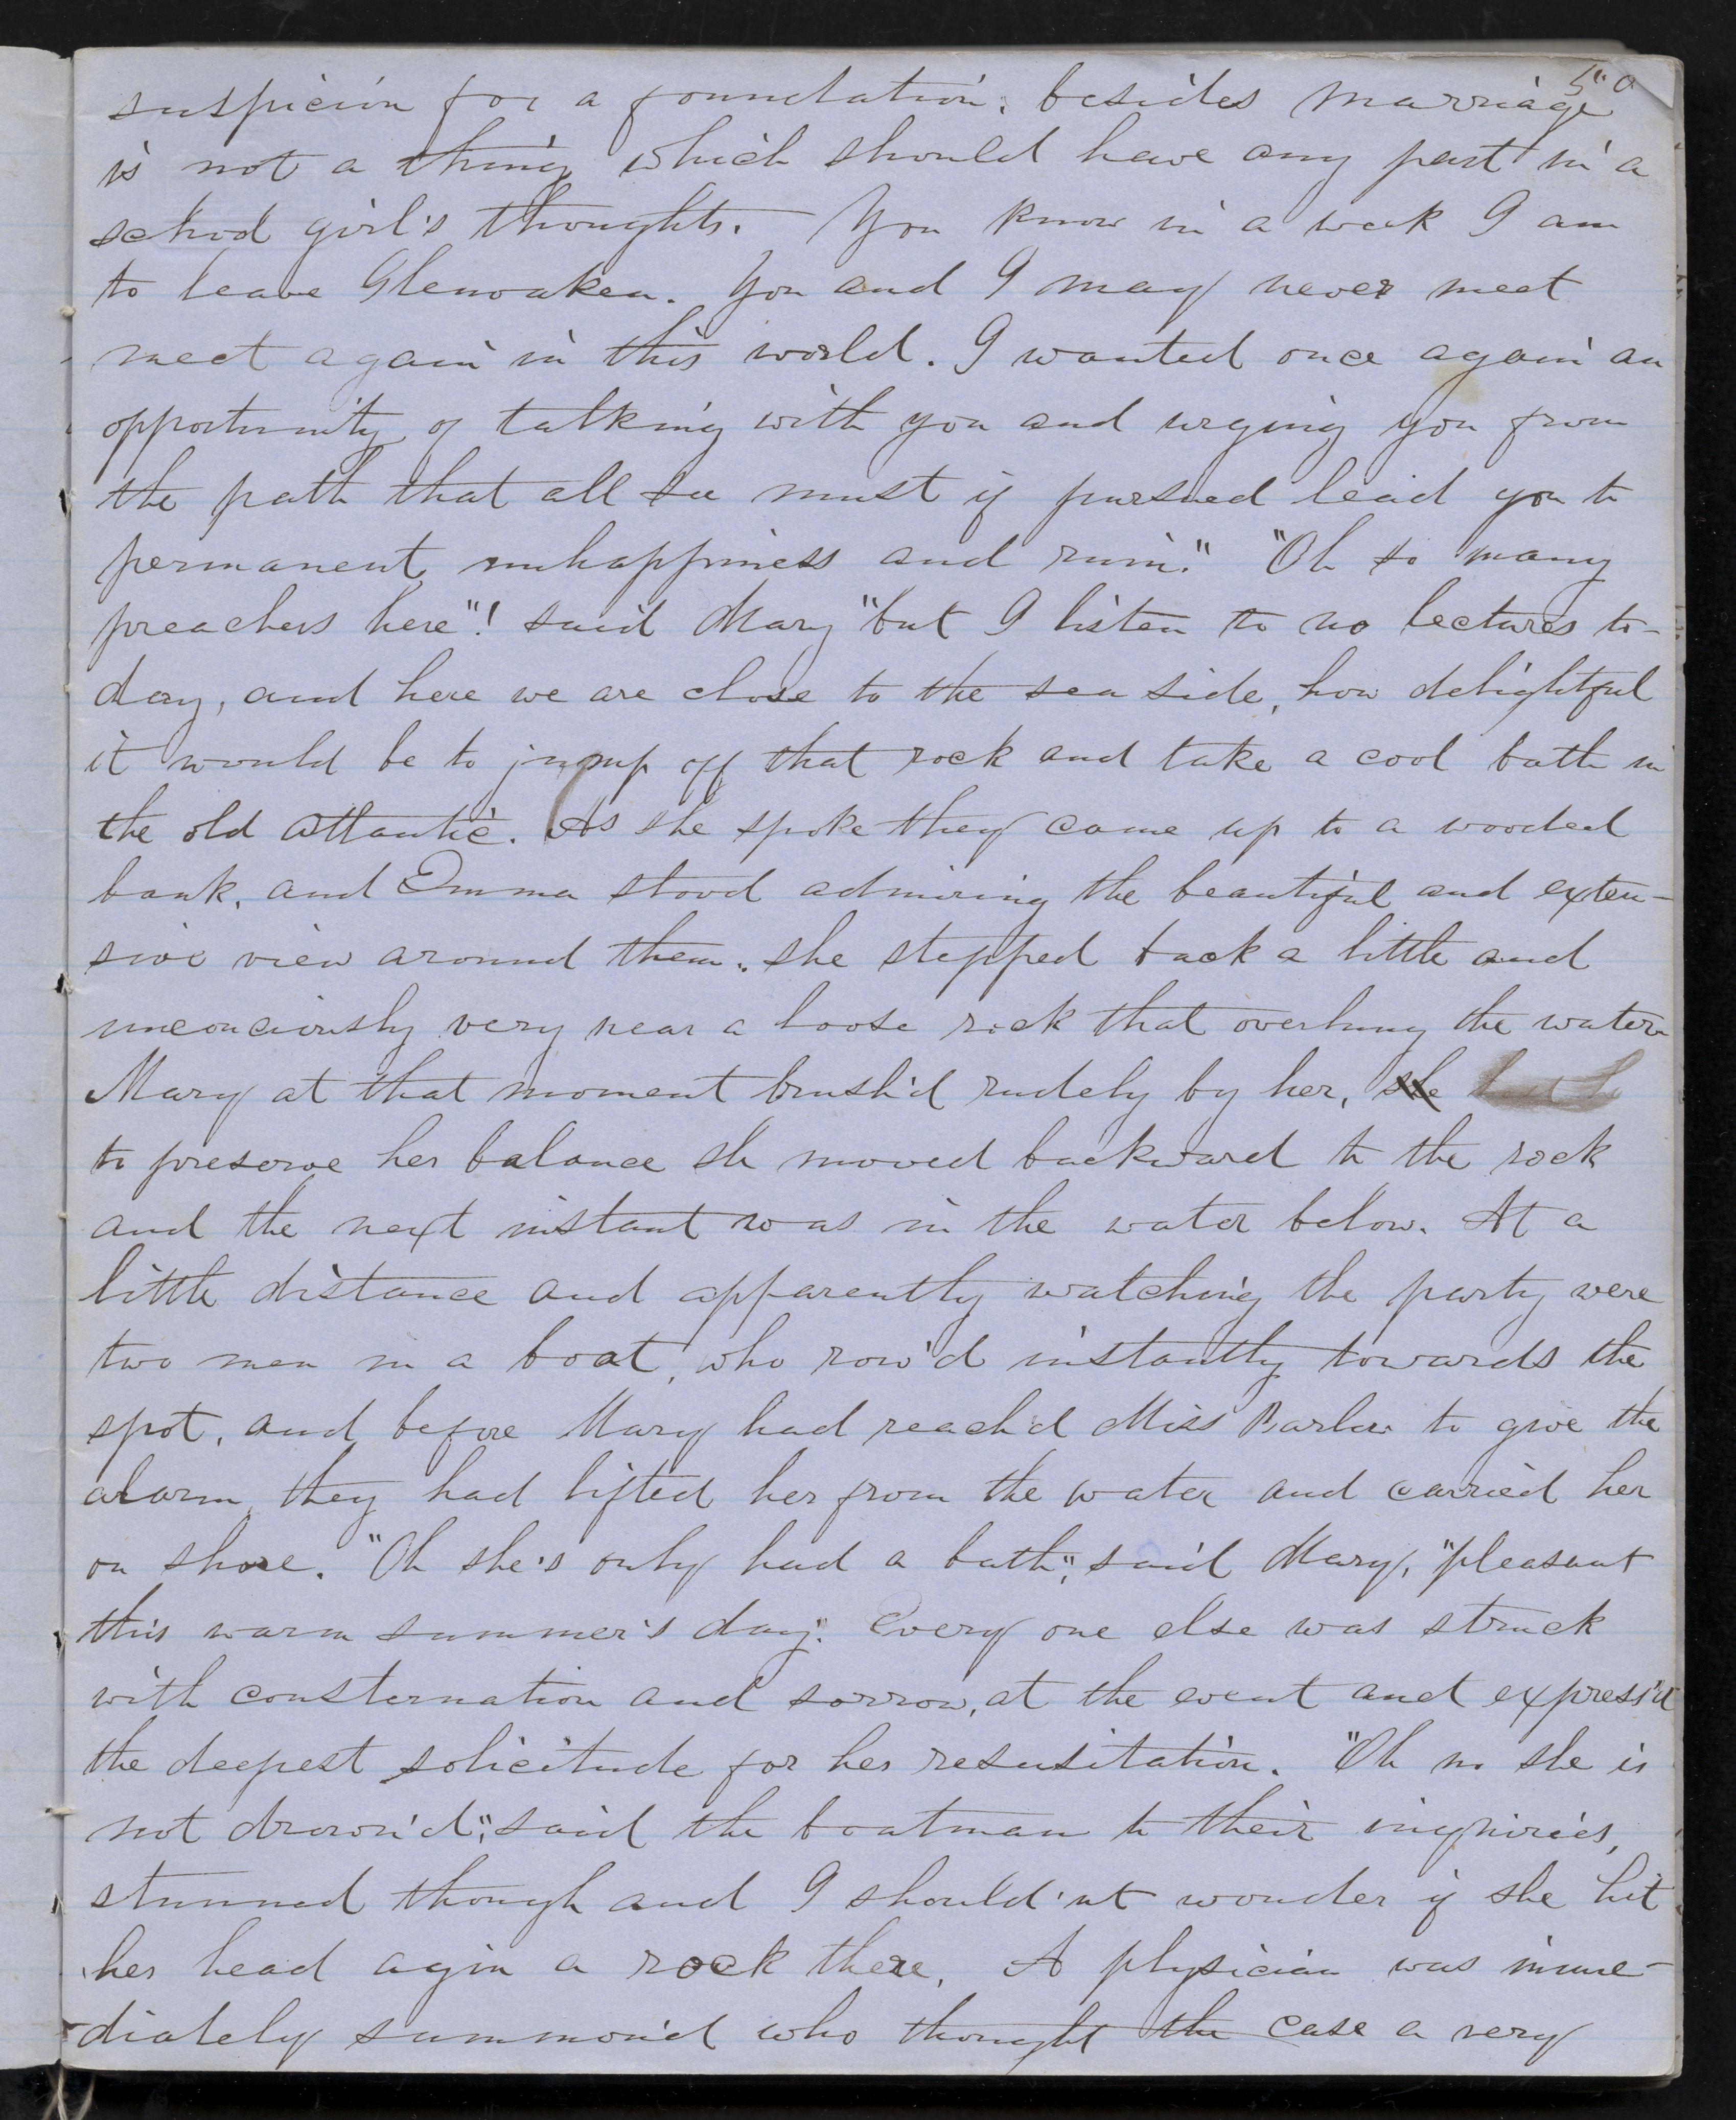 50
suspicion for a foundation. besides marriage
is not a thing which should have any part in a
school girl's thoughts. You know in a week I am
to leave Glenoaken. You and I may never meet
meet again in this world. I wanted once again an
opportunity of talking with you and urging you from
the path that all see must if pursued lead you to
permanent unhappiness and ruin." "Oh so many
preachers here"! said Mary "but I listen to no lectures to-
day, and here we are close to the sea side, how delightful
it would be to jump off that rock and take a cool bath in
the old Attlantic. As she spoke they came up to a wooded
bank, and Emma stood admiring the beautiful and exten-
sive view around them. she stepped back a little and
unconciously very near a loose rock that overhung the water
Mary at that moment brush'd rudely by her, she
to preserve her balance she moved backward to the rock
and the next instant was in the water below. At a
little distance and apparently watching the party were
two men in a boat, who row'd instantly towards the
spot, and before Mary had reach'd Miss Barlow to give the
alarm, they had lifted her from the water and carried her
on shore. "Oh she's only had a bath", said Mary, "pleasant
this warm summer's day." Every one else was struck
with consternation and sorrow, at the event and express'd
the deepest solicitude for her resusitation. "Oh no she is
not drown'd", said the boatman to their inquiries,
stunned though and I should'nt wonder if she hit
her head agin a rock there. A physician was imme-
diately summon'd who thought the case a very